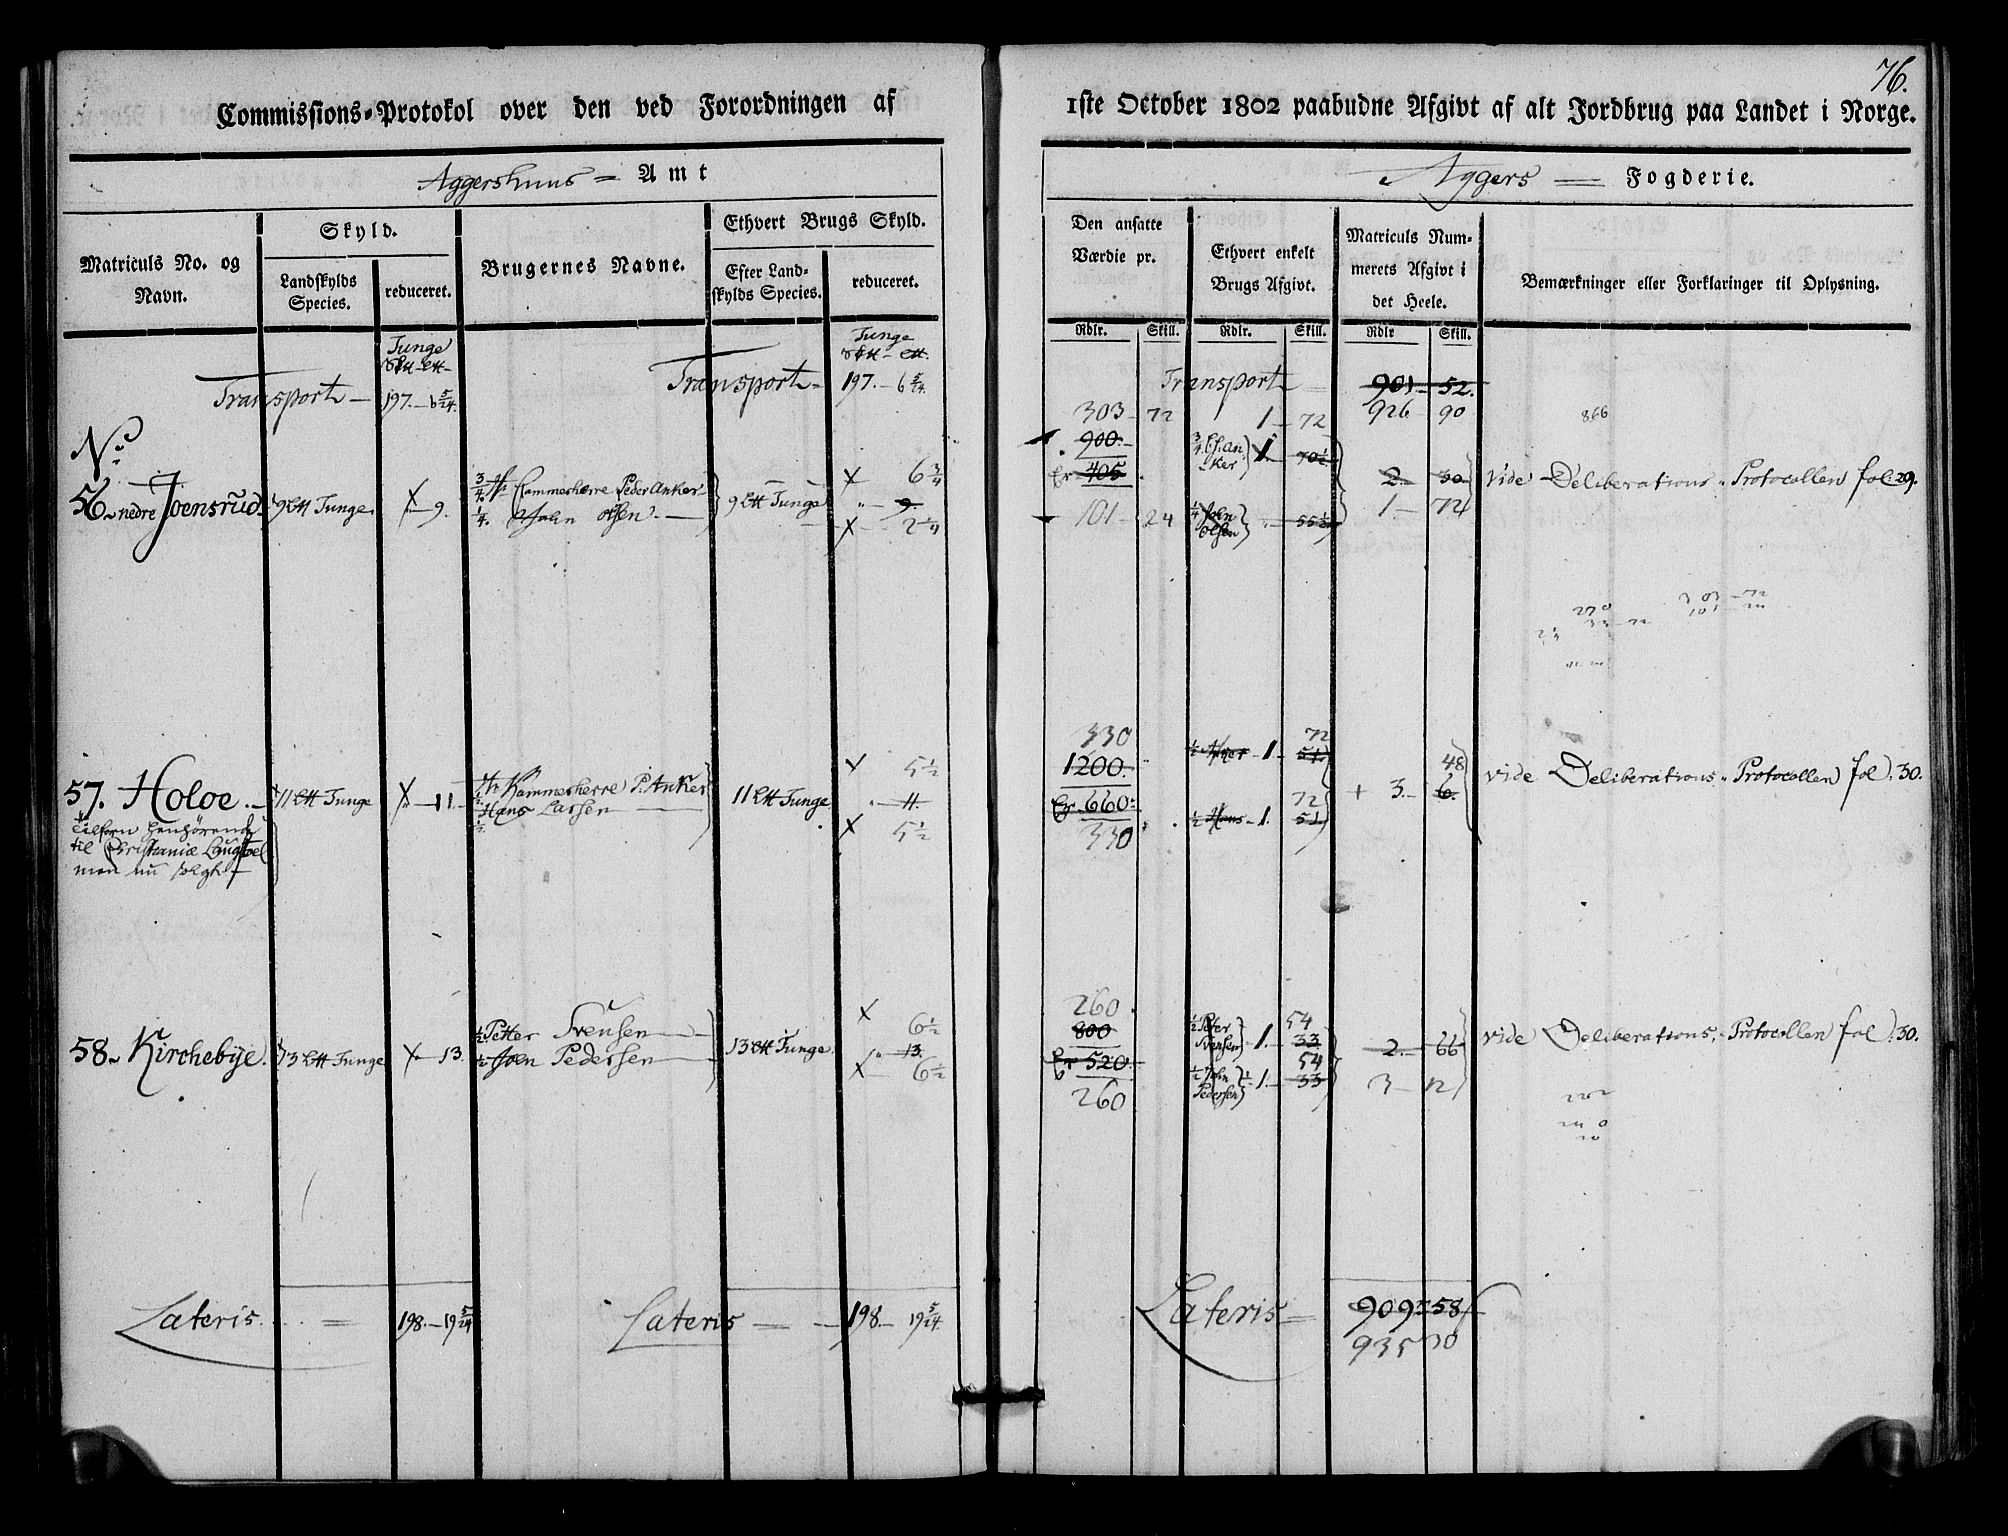 76.
Commissions-Protokol over den ved Forordningen af 1ste October 1802 paabudne Afgivt af alt Jordbrug paa Landet i Norge.
Aggershuus = Amt
Aggers = Fogderie.
Matriculs No. og Navn.
Skyld.
Landskylds Species.
reduceret.
Brugernes Navne.
Ethvert Brugs Skyld.
Efter Landskylds Species.
reduceret.
Den ansatte Værdie pr.
Ethvert enkelt Brugs Afgivt.
Matriculs Nummerets Afgivt i det Heele.
Bemærkninger eller Forklaringer til Oplysning.
Rdlr. Skill. Rdlr. Skill. Rdlr Skill.
Tunge
Tunge
Transport — 197. — 6 5/24.
Transport — 197. — 6 5/24.
Transport = 901 — 52.
926 90
866
No.
56. nedre Joensrud. 9 Tunge. 9.
3/4. Hr. Cammerherre Peder Anker
1/4. John Olsen
9 Tunge
6 3/4
9
2 1/4
303 — 72
900.
405
101 — 24
1 — 72
3/4 Anker 1 — 70 1/2
1/4 John Olsen 55 1/2
2. 30
1 — 72
vide Deliberations-Protocollen fol. 29.
270
303 — 72
101 — 24
57. Holoe. 11 Tunge 11.
tilforn henhørende
til Christianiæ
men nu solgt
1/2 Hr. Kammerherre P. Anker
1/2 Hans Larsen
11 Tunge
5 1/2
11.
5 1/2
330
1200.
660.
330
72
1/2 1. 51
72
1/2 Hans 1. 51
48
3. 6.
vide Deliberations-Protocollen fol. 30.
58. Kirchebÿe. 13 Tunge 13.
1/2 Petter Svensen
1/2 Joen Pedersen
13 Tunge
6 1/2
13.
6 1/2
260
800
520
260
1/2 Peter Svensen 1. 33
54
54
1/2 John Pedersen 1. 33
2. 66
3 12
vide Deliberations-Protocollen fol. 30.
Lateris = 198. — 19 5/24
Lateris = 198. — 19 5/24.
Lateris = 909 = 58
935 30